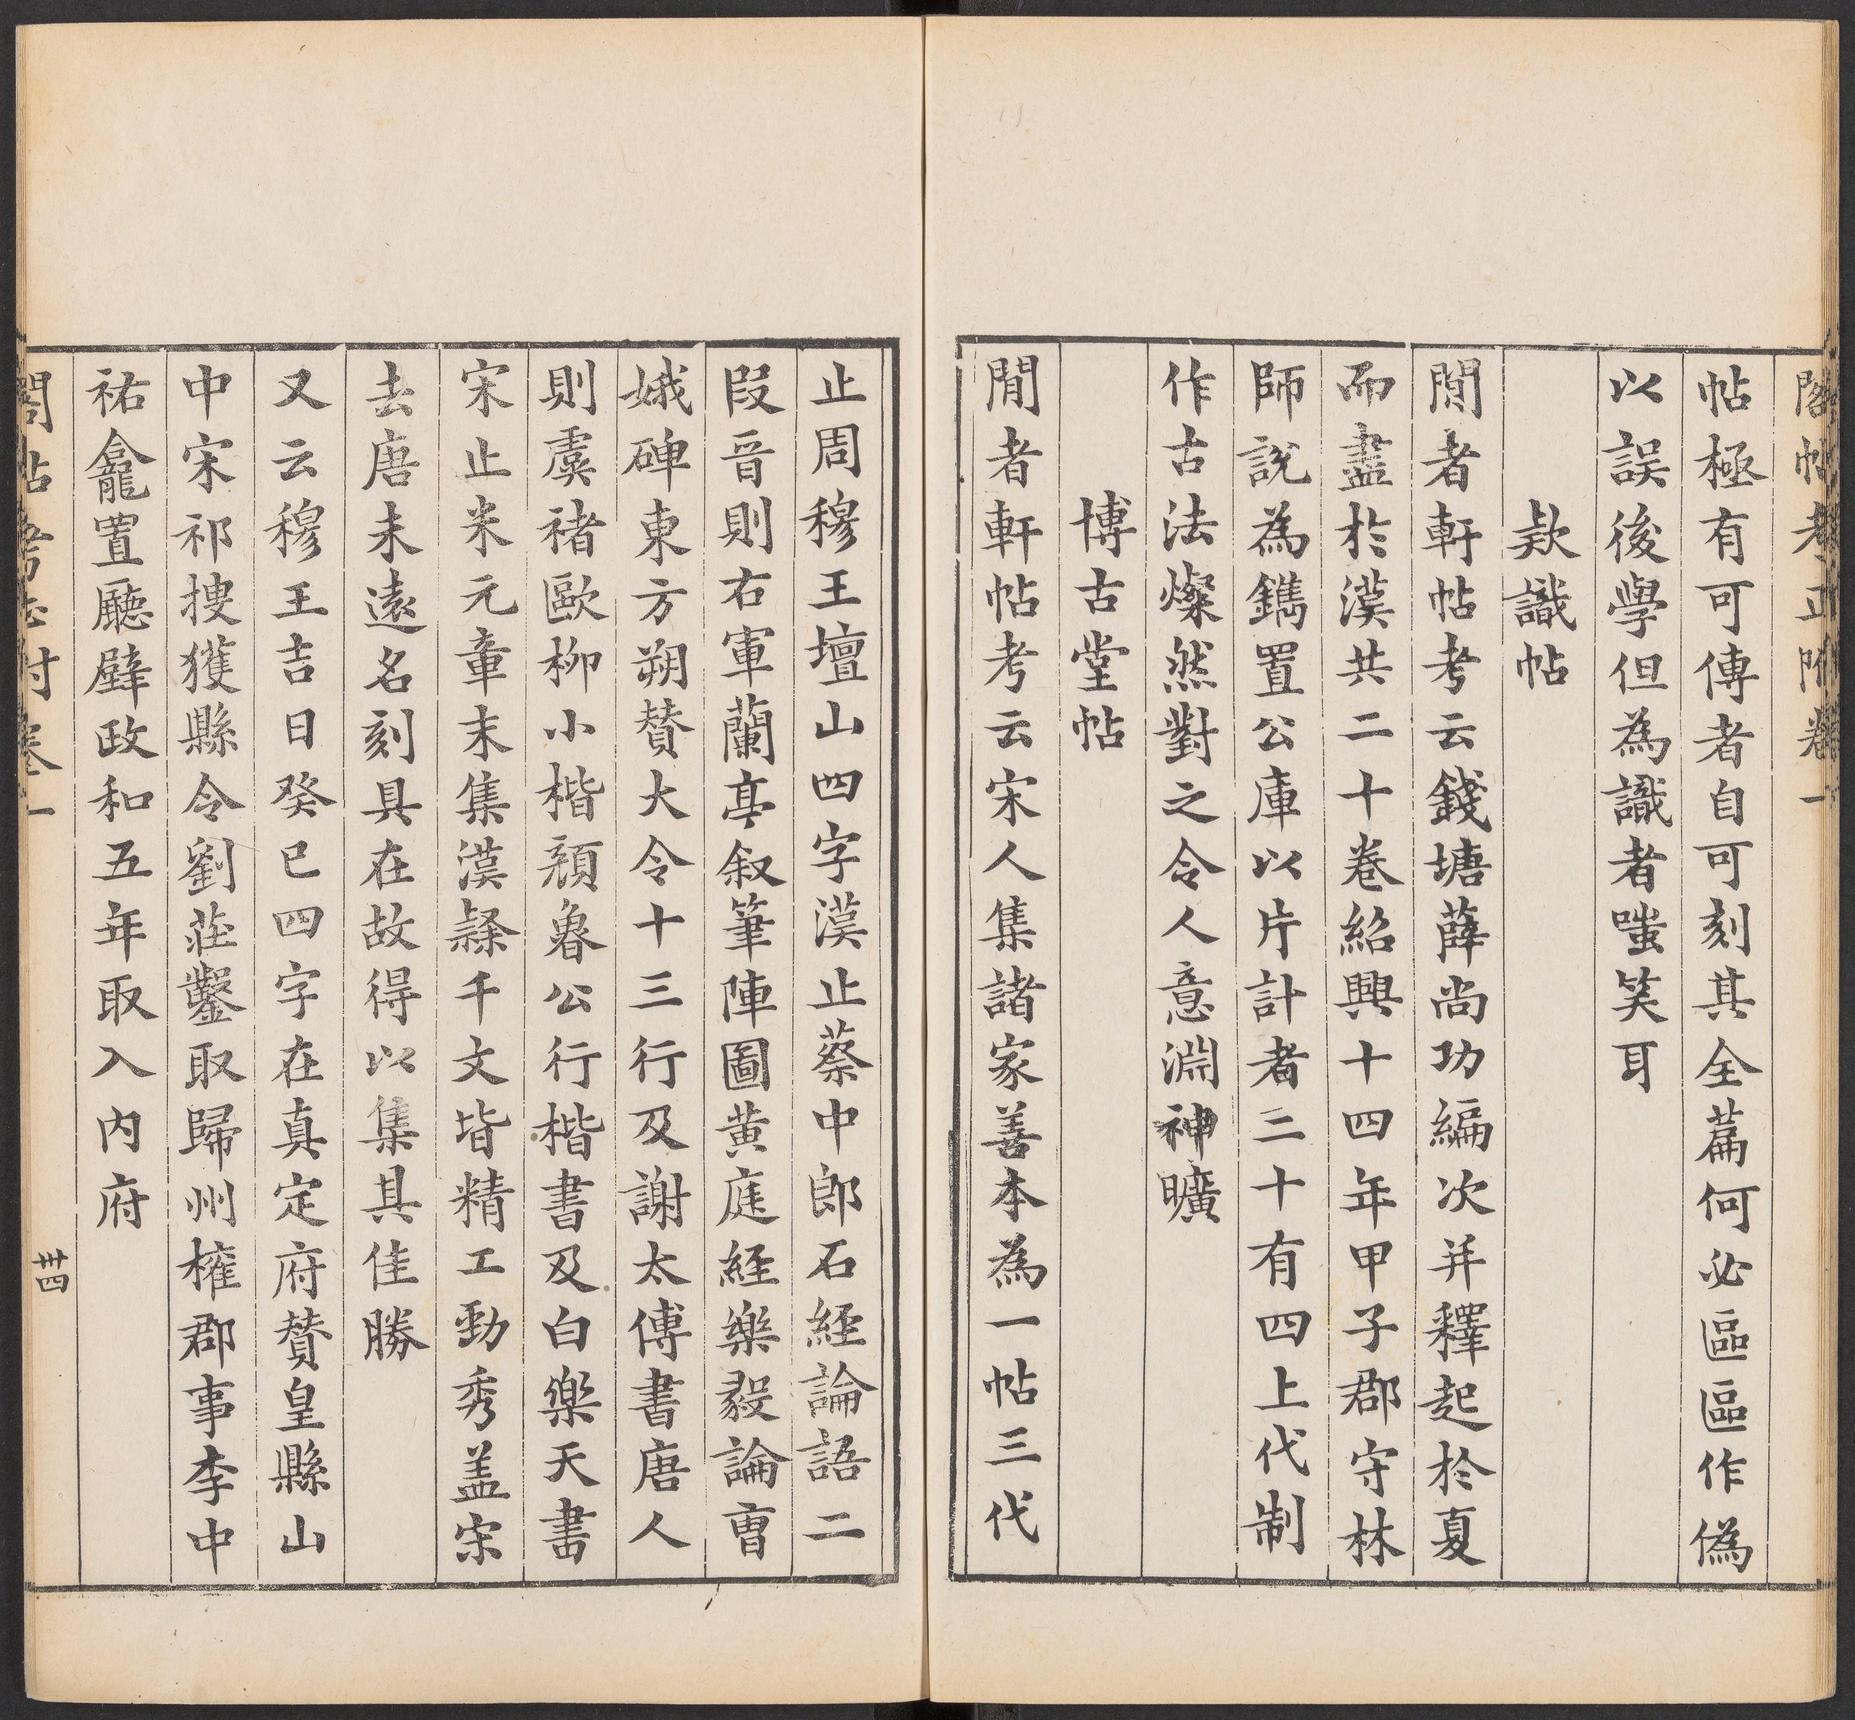 閣帖考正附卷一
帖極有可傳者自可刻其全篇何必區區作偽
以誤後學但為識者嗤笑耳
欵識帖
閒者軒帖考云錢塘薛尚功編次并釋起於夏
而盡於漢共二十卷紹興十四年甲子郡守林
師說為鐫置公庫以片計者二十有四上代制
作古法燦然對之令人意淵神曠
博古堂帖
閒者軒帖考云宋人集諸家善本為一帖三代
止周穆王壇山四字漢止蔡中郎石經論語二
段晉則右軍蘭亭叙筆陣圖黃庭經樂毅論曹
娥碑東方朔贊大令十三行及謝太傅書唐人
則虞禇歐柳小楷顏魯公行楷書及白樂天書
宋止米元章末集漢隸千文皆精工勁秀盖宋
去唐未遠名刻具在故得以集其佳勝
又云穆王吉日癸巳四字在真定府贊皇縣山
中宋祁摟獲縣令劉莊鑿取歸州榷郡事李中
祐龕置廳壁政和五年取入內府
閣帖考正附卷一
卅四